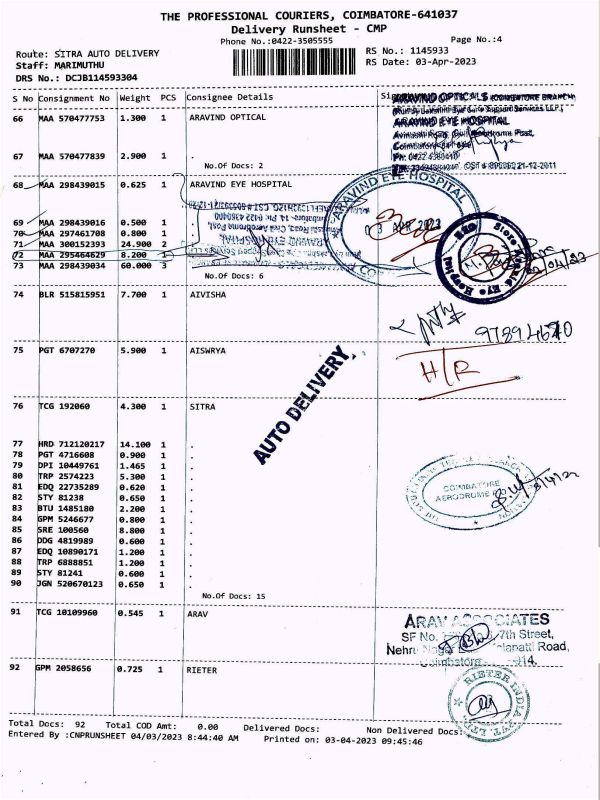 THE PROFESSIONAL COURIERS, COIMBATORE-641037
Delivery Runsheet - CMP
Phone No.:0422-3505555
Page No.:4
Route: SITRA AUTO DELIVERY
RS No.: 1145933
Staff: MARIMUTHU
RS Date: 03-Apr-2023
DRS No.: DCJB114593304
S No Consignment No Weight PCS Consignee Details
66 MAA 570477753 1.300 1 ARAVIND OPTICAL
ARAVIND OPTICALS (COIMBATORE BRANCH)
ARAVIND EYE HOSPITAL
67 MAA 570477839 2.900 1 .
No.Of Docs: 2
68 MAA 298439015 0.625 1 ARAVIND EYE HOSPITAL
69 MAA 298439016 0.500 1
70 MAA 297461708 0.800 1
71 MAA 300152393 24.900 2
72 MAA 295464629 8.200 1
73 MAA 298439034 60.000 3
No.Of Docs: 6
ARAVIND EYE HOSPITAL
03 APR 2023
74 BLR 515815951 7.700 1 AIVISHA
75 PGT 6707270 5.900 1 AISWRYA
H/R
AUTO DELIVERY
76 TCG 192060 4.300 1 SITRA
77 HRD 712120217 14.100 1 .
78 PGT 4716608 0.900 1 .
79 DPI 10449761 1.465 1 .
80 TRP 2574223 5.300 1 .
81 EDQ 22735289 0.620 1 .
82 STY 81238 0.650 1 .
83 BTU 1485180 2.200 1 .
84 GPM 5246677 0.800 1 .
85 SRE 100560 8.800 1 .
86 DDG 4819989 0.600 1 .
87 EDQ 10890171 1.200 1 .
88 TRP 6888851 1.200 1 .
89 STY 81241 0.600 1 .
90 JGN 520670123 0.650 1 .
No.Of Docs: 15
COIMBATORE
AERODROME
91 TCG 10109960 0.545 1 ARAV
ARAV ASSOCIATES
SF No. 7th Street,
Road,
92 GPM 2058656 0.725 1 RIETER
RIETER INDIA PVT. LTD.
Total Docs: 92 Total COD Amt: 0.00 Delivered Docs: Non Delivered Docs:
Entered By :CNPRUNSHEET 04/03/2023 8:44:40 AM Printed on: 03-04-2023 09:45:46